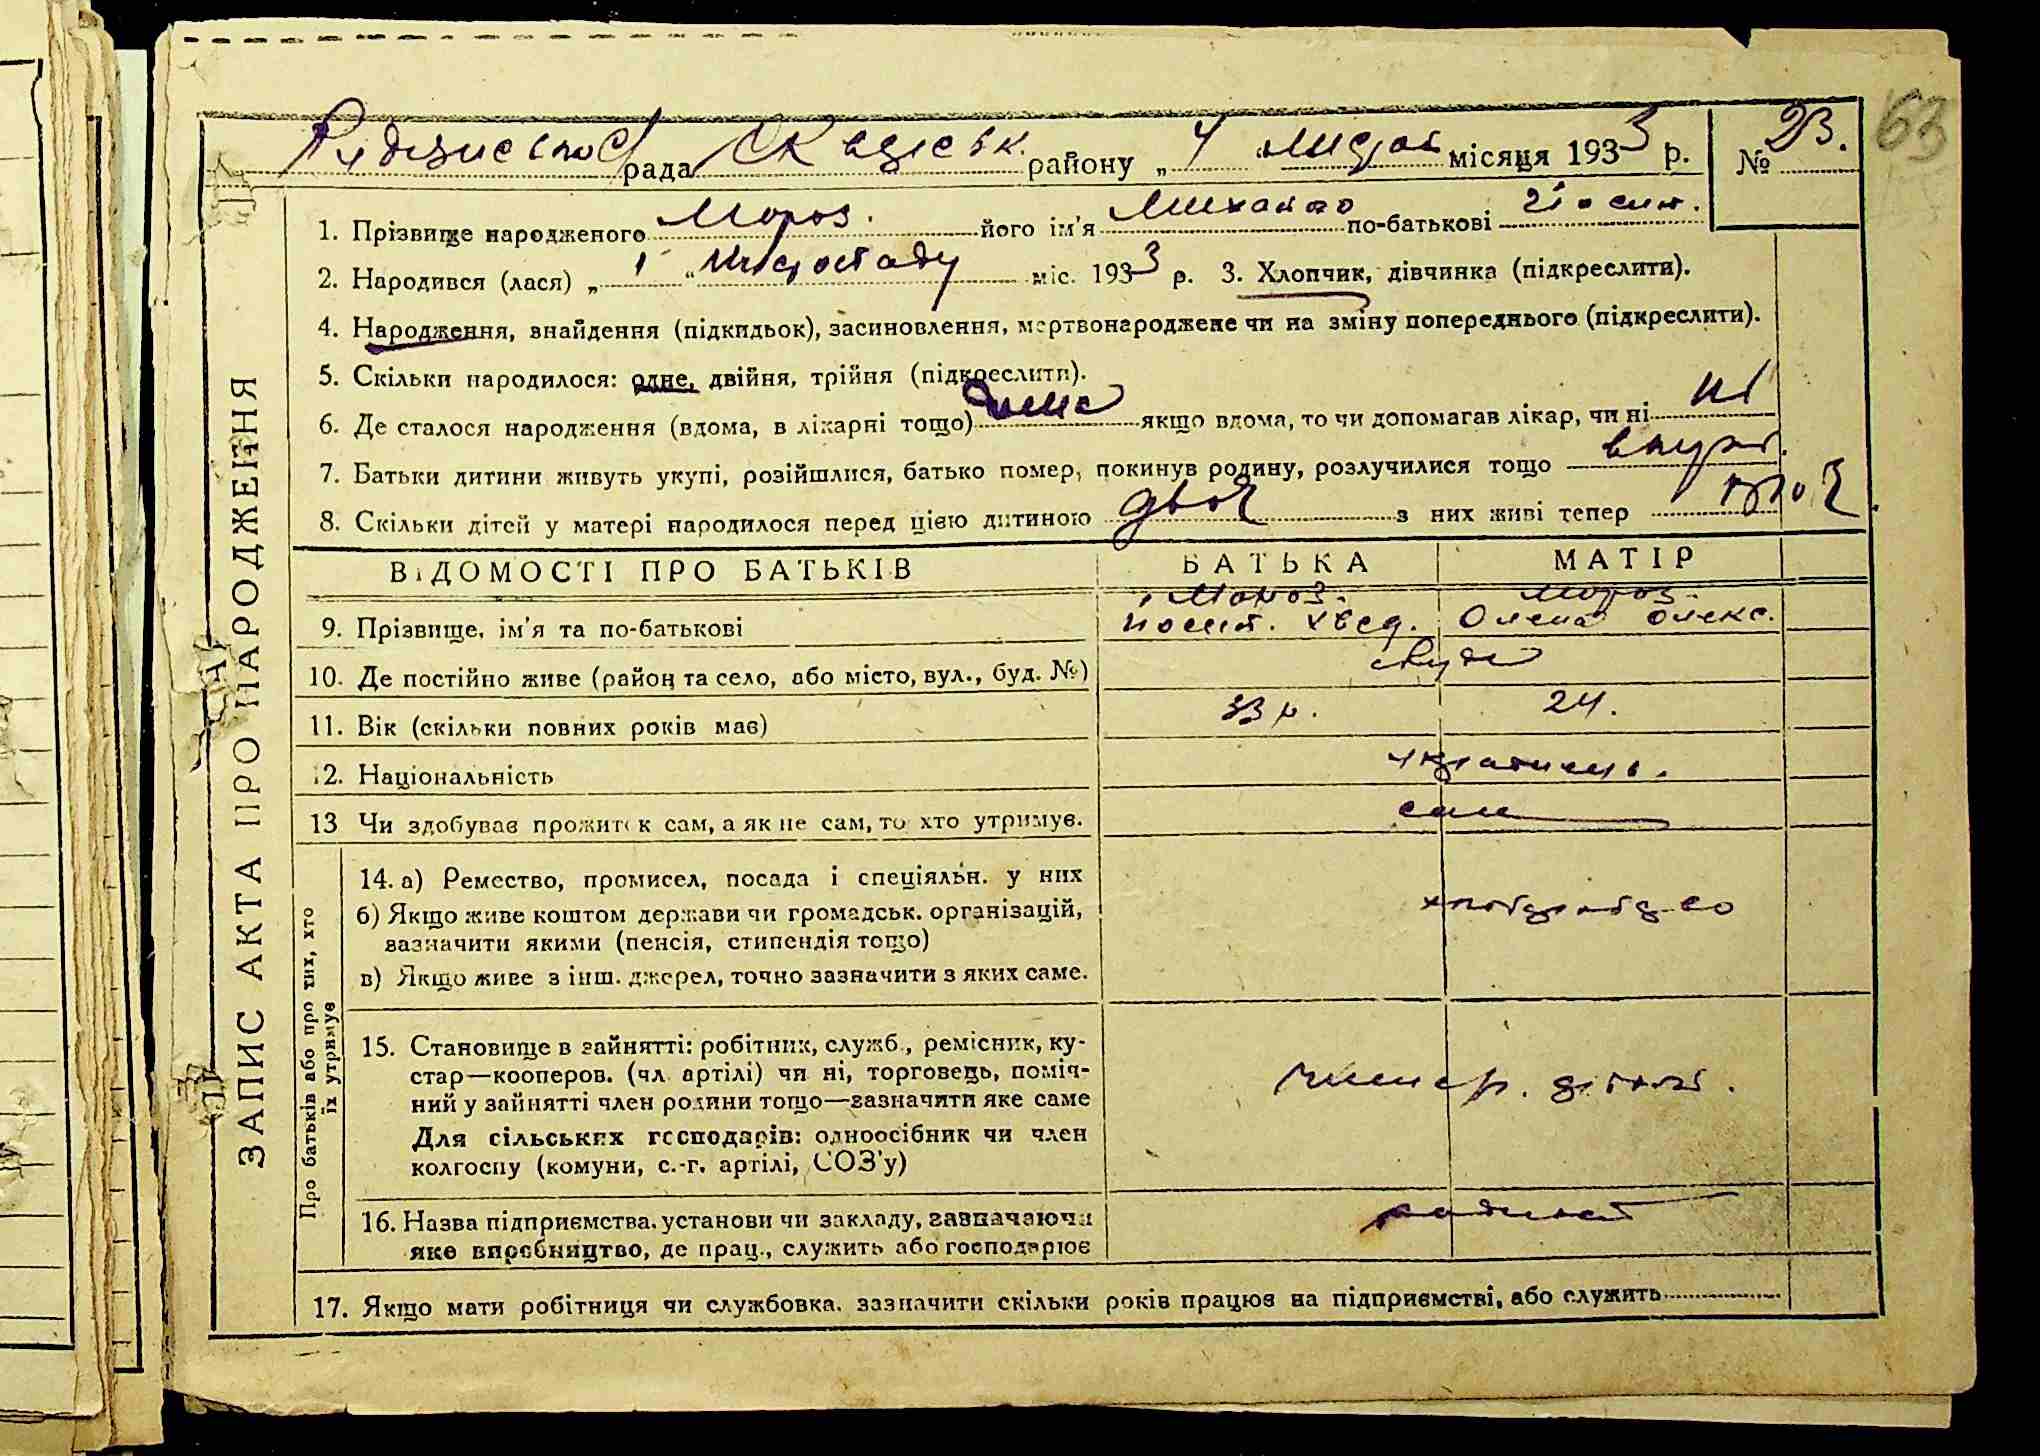 63
рада району „ 4 " листоп місяця 1933 р. № 23.
1. Прізвище народженого Мороз. його ім'я Михайло по-батькові Йосип.
2. Народився (лася) „ 1 " листопаду міс. 1933 р. 3. Хлопчик, дівчинка (підкреслити).
4. Народження, внайдення (підкидьок), засиновлення, мертвонароджене чи на зміну попереднього (підкреслити).
5. Скільки народилося: одне, двійня, трійня (підкреслити).
6. Де сталося народження (вдома, в лікарні тощо) дома якщо вдома, то чи допомагав лікар, чи ні ні
7. Батьки дитини живуть укупі, розійшлися, батько помер, покинув родину, розлучилися тощо вкупі.
8. Скільки дітей у матері народилося перед цією дитиною двоє з них живі тепер двоє
ВІДОМОСТІ ПРО БАТЬКІВ БАТЬКА МАТІР
Мороз. Мороз.
9. Прізвище, ім'я та по-батькові Йосип. Хвед. Олена Олекс.
10. Де постійно живе (район та село, або місто, вул., буд. №)
11. Вік (скільки повних років має) 33 р. 24.
12. Національність українець.
13 Чи здобуває прожиток сам, а як не сам, то хто утримує. сам
ЗАПИС АКТА ПРО НАРОДЖЕННЯ
Про батьків або про тих, хто
їх утримує
14. а) Ремество, промисел, посада і спеціяльн. у них
б) Якщо живе коштом держави чи громадськ. організацій, хлібороб
зазначити якими (пенсія, стипендія тощо)
в) Якщо живе з інш. джерел, точно зазначити з яких саме.
15. Становище в зайнятті: робітник, служб., ремісник, ку-
стар—кооперов. (чл. артілі) чи ні, торговець, поміч-
ний у зайнятті член родини тощо—зазначити яке саме
Для сільських господарів: одноосібник чи член
колгоспу (комуни, с.-г. артілі, СОЗ'у)
16. Назва підприємства, установи чи закладу, зазначаючи
яке виробництво, де прац., служить або господарює
17. Якщо мати робітниця чи службовка, зазначити скільки років працює на підприємстві, або служить